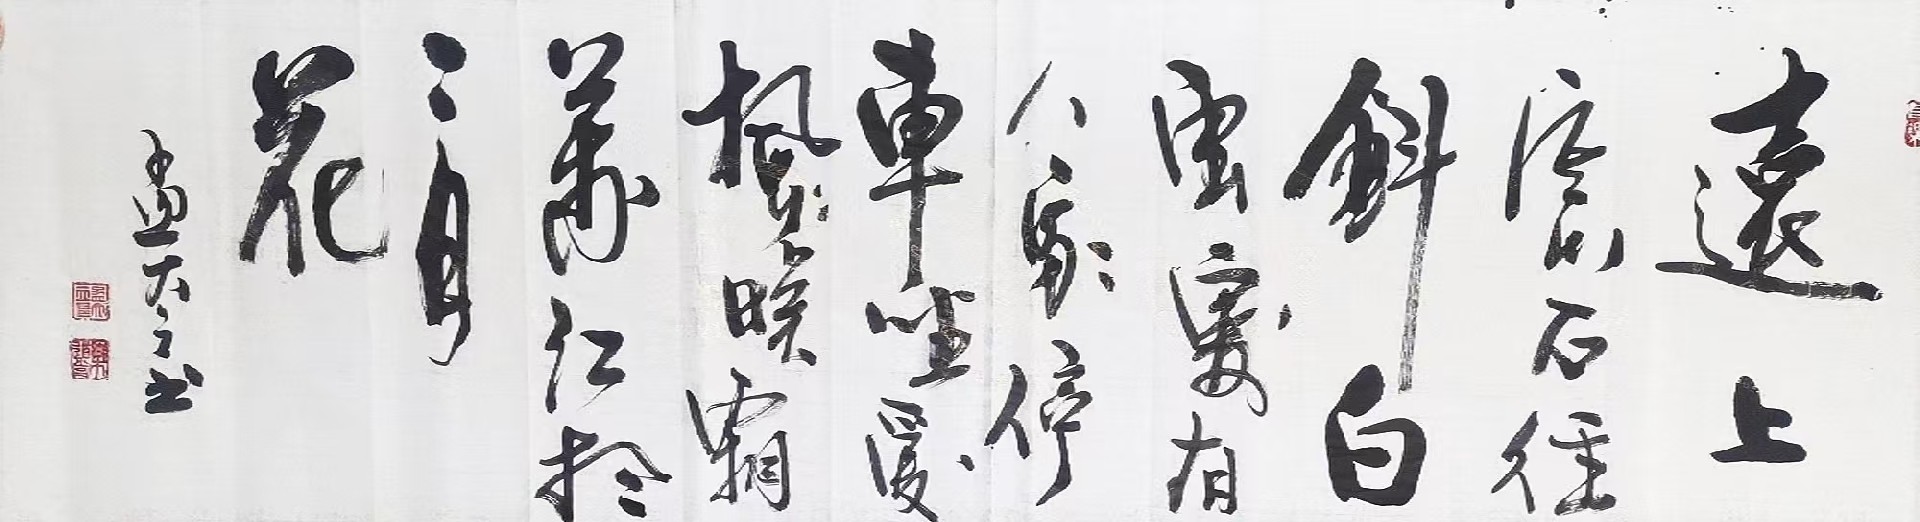 遠上
山石徑
斜白
雲處有
人家停
車坐愛
楓林晚霜
葉紅於
二月
花
孟天之书